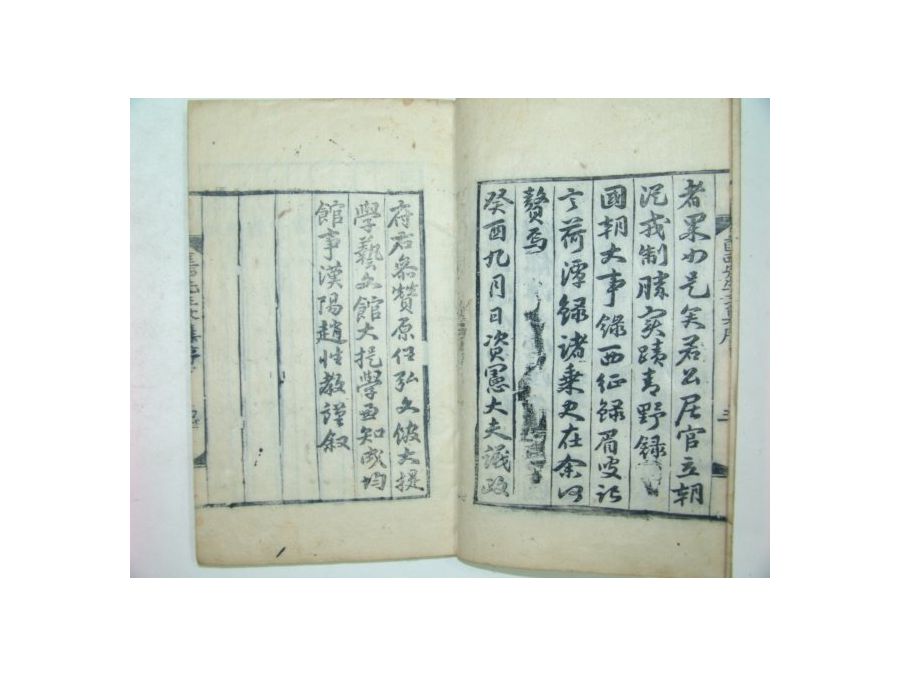 者果如是矣若公居官立朝
況我制勝實蹟青野録
國朝大事録西征録眉叟記
言荷潭録諸乗史在余何
贅焉
癸酉九月日資憲大夫議政
府右參贊原任弘文館大提
學藝文館大提學兼知成均
館事漢陽趙性教謹叙